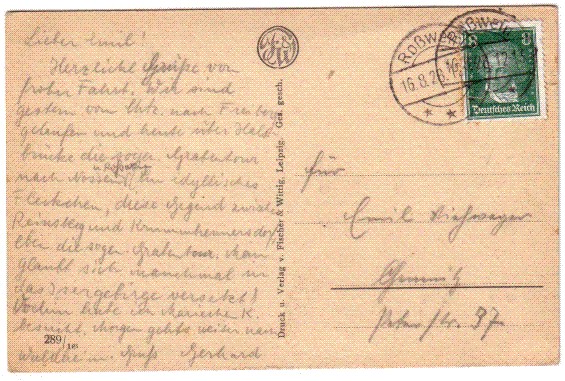 Lieber Emil!
Herzliche Grüße von
froher Fahrt. Wir sind
gestern von nach
gelaufen und heute über Hals-
brücke die sogen. Grabentour
nach Nossen u. Roßwein. Ein idyllisches
Fleckchen, diese Gegend zwisch.
Reinsberg und Krummhennersdorf
eben die sogen. Grabentour. Man
glaubt sich manchmal in
das Isergebirge versetzt!
habe ich K.
besucht. Morgen gehts weiter nach
Waldheim. Gruß Gerhard
289/
Druck u. Verlag v. Fischer & Wittig, Leipzig. Ges. gesch.
Roßwein
16.8.28
Roßwein
8 8
Deutsches Reich
Für
Emil
Chemnitz
Peterstr. 37